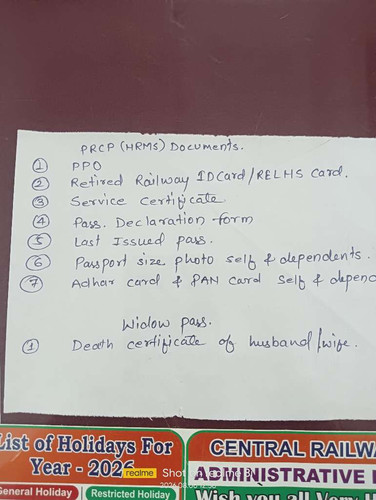 PRCP (HRMS) Documents.
① PPO
② Retired Railway IDCard/RELHS Card.
③ Service Certificate
④ Pass. Declaration form
⑤ Last Issued pass.
⑥ Passport size photo self & dependents.
⑦ Adhar card & PAN card self & depend
Widow pass.
① Death certificate of husband/wife.
List of Holidays For
Year - 2026
General Holiday
Restricted Holiday
CENTRAL RAILW
ADMINISTRATIVE
Wish you all Very
realme Shot on realme